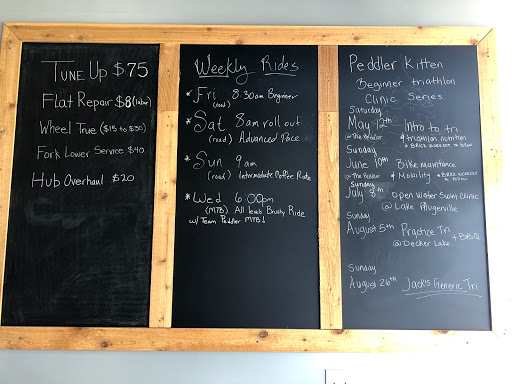 Tune Up $75
Flat Repair $8 (labor)
Wheel True ($15 to $30)
Fork Lower Service $40
Hub Overhaul $20
Weekly Rides
* Fri 8:30am Beginner
(road)
* Sat 8am roll out
(road) Advanced Pace
* Sun 9am
(road) Intermediate Coffee Ride
* Wed 6:00pm
(MTB) All levels Brushy Ride
w/ Team Peddler MTB!
Peddler Kitten
Beginner triathlon
Clinic Series
Saturday
May 12th Intro to tri
@ The Peddler & triathlon nutrition
& Brick workout to follow
Sunday
June 10th Bike maintance
@ The Peddler & Mobility & Brick workout to follow
Sunday
July 8th Open Water Swim Clinic
@ Lake Pflugerville
Sunday
August 5th Practice Tri
@ Decker Lake + BBQ
Sunday
August 26th Jack's Generic Tri